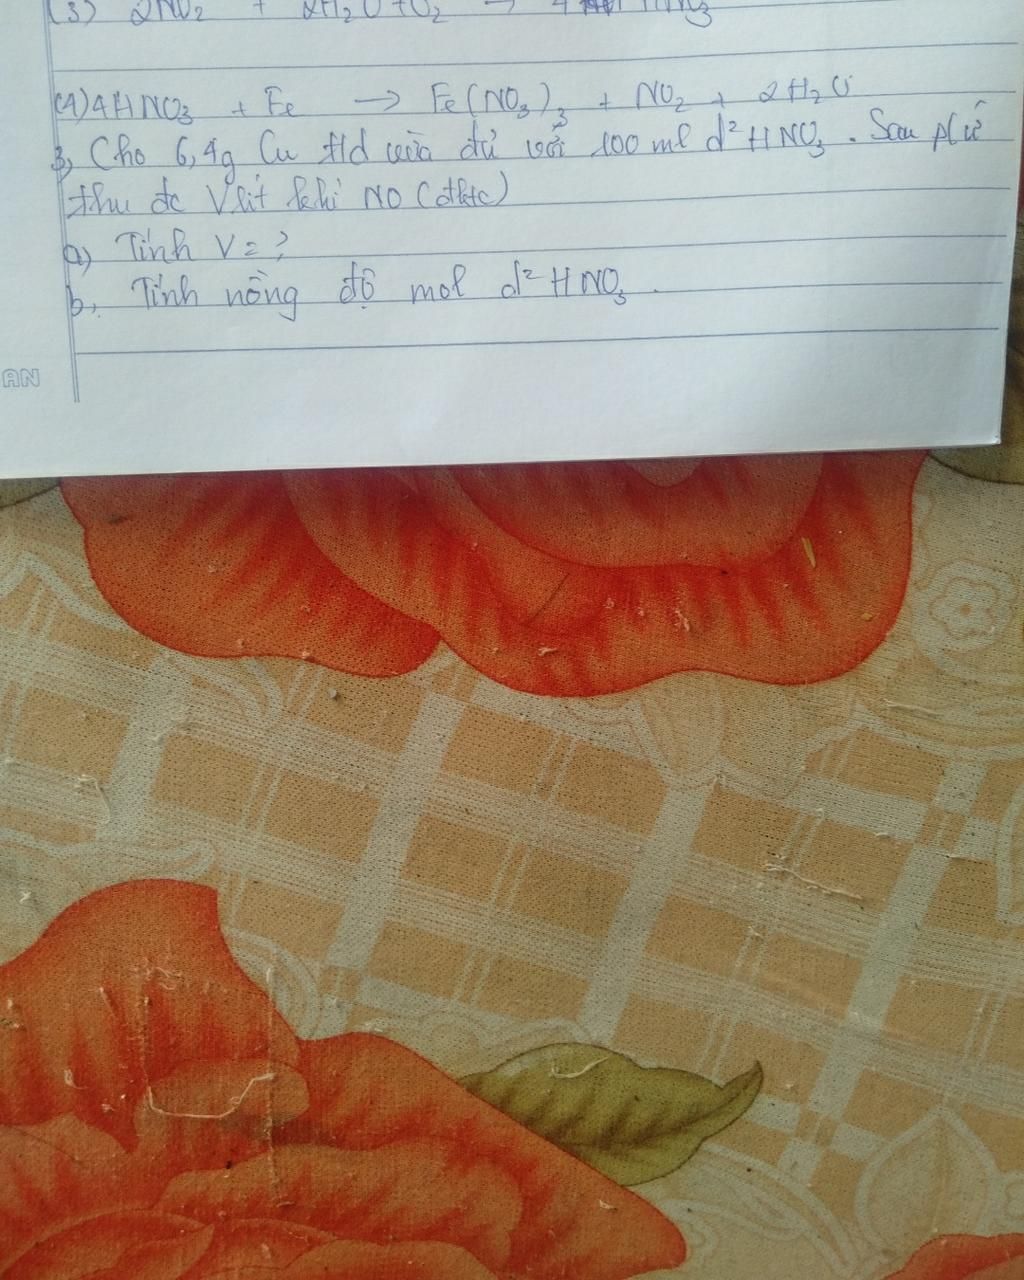 (3) 2NO₂ + 2H₂O + O₂ → 4 HNO₃
(4) 4HNO₃ + Fe → Fe(NO₃)₃ + NO₂ + 2H₂O
3, Cho 6,4g Cu t/d vừa đủ với 100 ml d² HNO₃. Sau p/ứ
thu đc V lít khí NO (đktc)
a) Tính V = ?
b, Tính nồng độ mol d² HNO₃.
AN